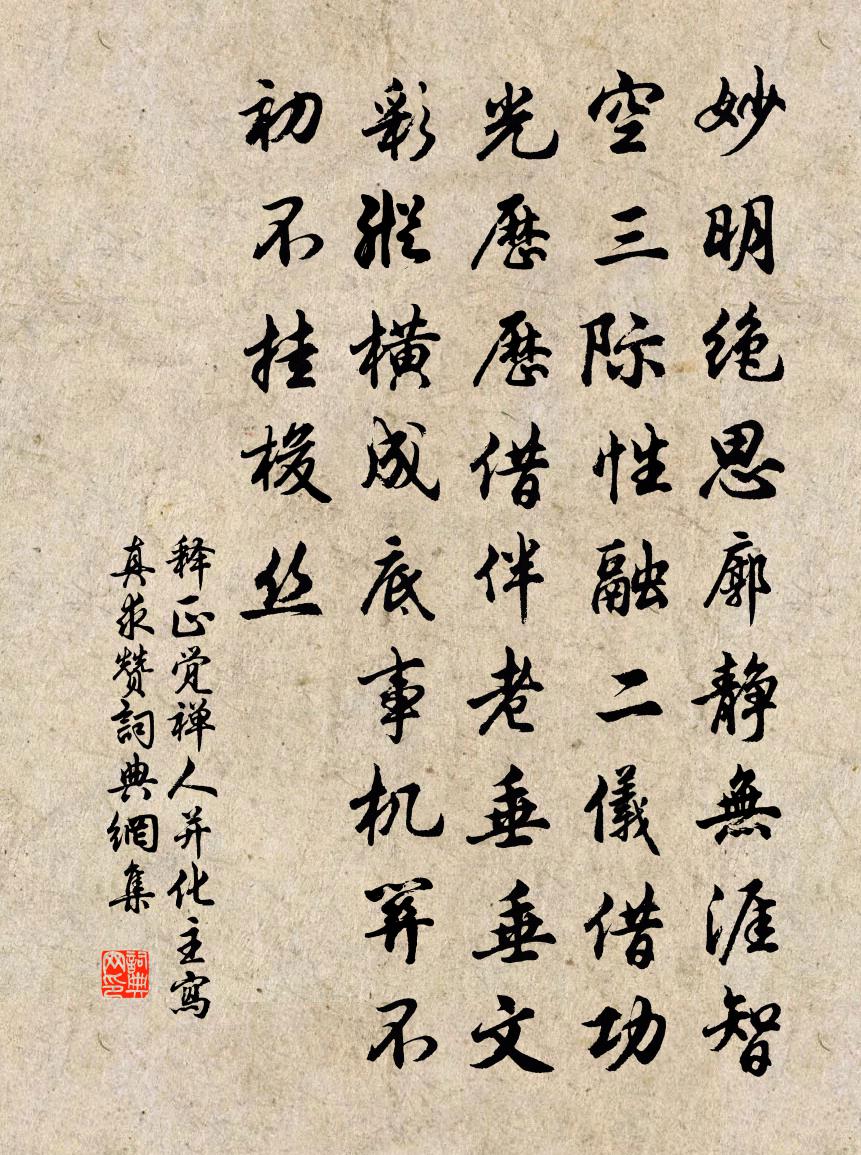 妙明绝思廓静無涯智
空三际性融二儀借功
光歷歷借伴老垂垂文
彩縱横成底事机羿不
初不挂梭丝
释正觉禅人并化主寫
真求赞詞典網集
詞典网印